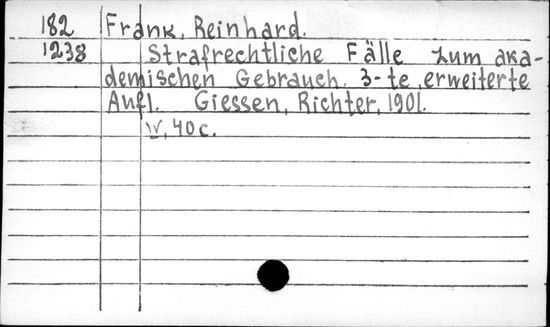 182 Frank, Reinhard.
1238 Strafrechtliche Fälle zum aka-
demischen Gebrauch. 3-te, erweiterte
Aufl. Giessen, Richter, 1901.
IV, 40 c.